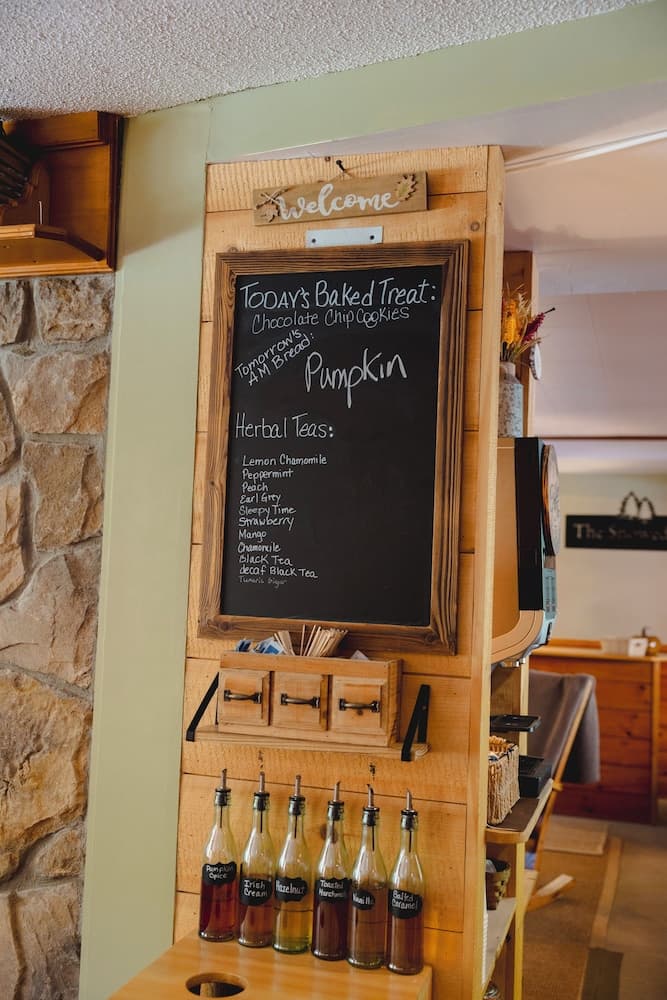 welcome
TODAY'S BAKED TREAT:
CHOCOLATE CHIP COOKIES
Tomorrow's
AM Bread:
Pumpkin
Herbal Teas:
Lemon Chamomile
Peppermint
Peach
Earl Grey
Sleepy Time
Strawberry
Mango
Chamomile
BLACK TEA
decaf BLACK TEA
Pumpkin
Spice
Irish
Cream
Hazelnut
Toasted
Vanilla
Salted
Caramel
The